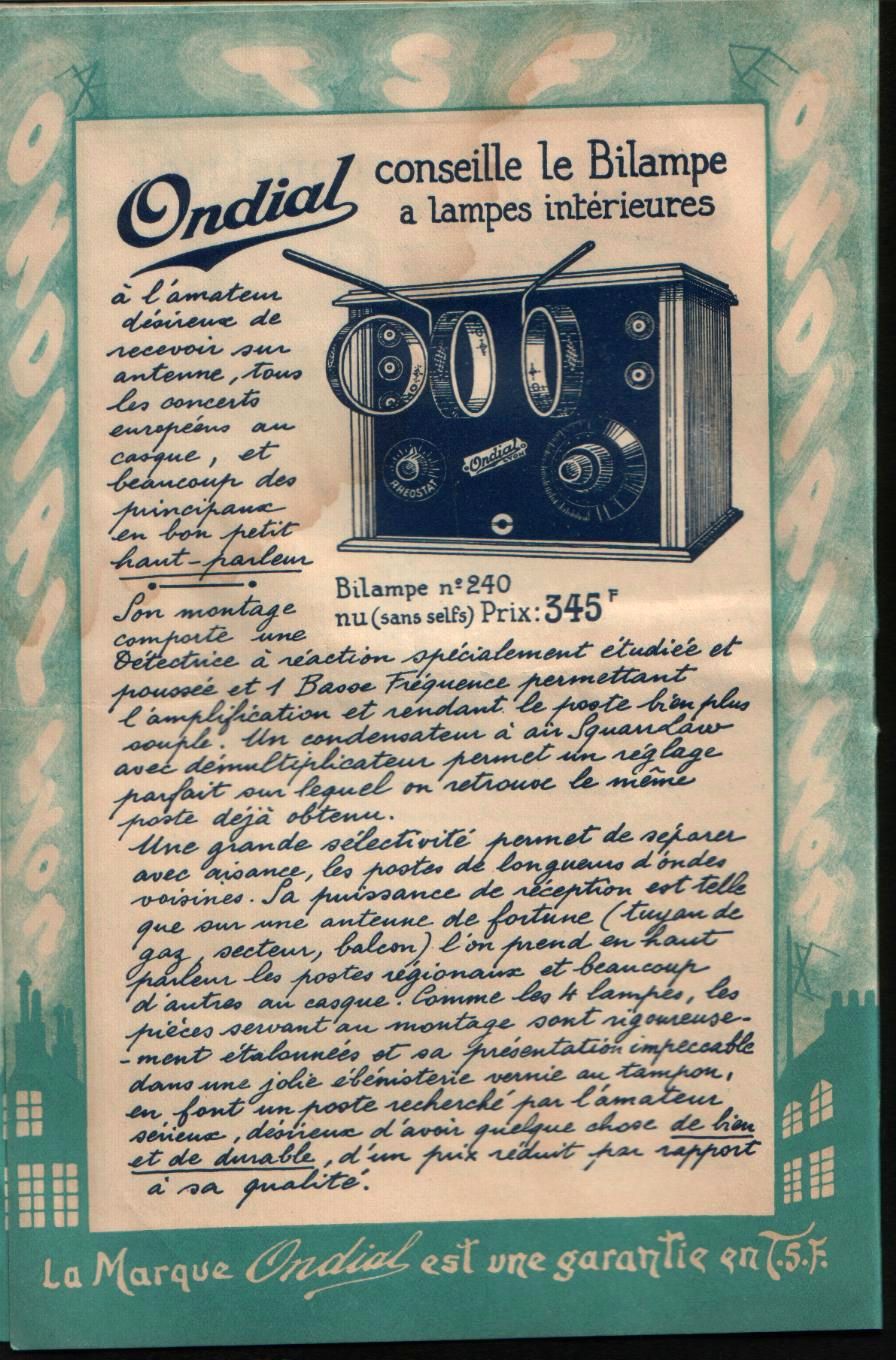 T S F
ONDIAL
Lyon
ONDIAL
Lyon
Ondial conseille le Bilampe
a lampes intérieures
à l'amateur
désireux de
recevoir sur
antenne, tous
les concerts
européens au
casque, et
beaucoup des
principaux
en bon petit
haut-parleur
RHEOSTAT
Ondial
LYON
Bilampe nº 240
nu (sans selfs) Prix: 345 F
Son montage
comporte une
Détectrice à réaction spécialement étudiée et
poussée et 1 Basse Fréquence permettant
l'amplification et rendant le poste bien plus
souple. Un condensateur à air Squarr Law
avec démultiplicateur permet un réglage
parfait sur lequel on retrouve le même
poste déjà obtenu.
Une grande sélectivité permet de séparer
avec aisance, les postes de longueurs d'ondes
voisines. Sa puissance de réception est telle
que sur une antenne de fortune (tuyau de
gaz, secteur, balcon) l'on prend en haut
parleur les postes régionaux et beaucoup
d'autres au casque. Comme les 4 lampes, les
pièces servant au montage sont rigoureuse-
-ment étalonnées et sa présentation impeccable
dans une jolie ébénisterie vernie au tampon,
en font un poste recherché par l'amateur
sérieux, désireux d'avoir quelque chose de bien
et de durable, d'un prix réduit par rapport
à sa qualité.
La Marque Ondial est une garantie en T.S.F.